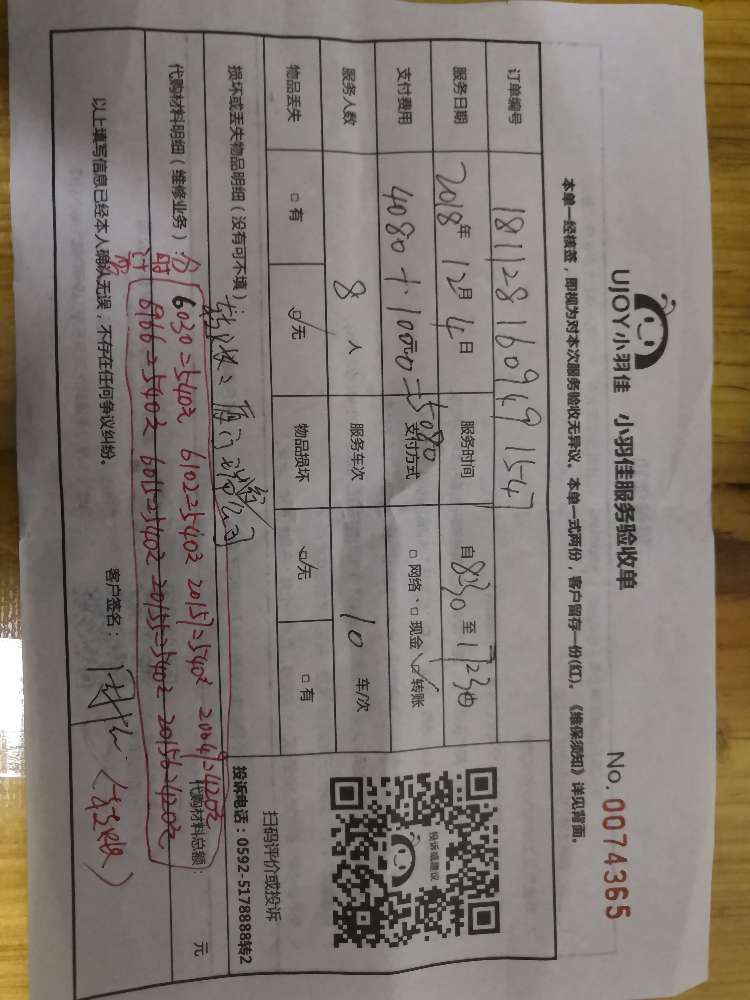 UJOY小羽佳 小羽佳服务验收单
No. 0074365
本单一经核签，即视为对本次服务验收无异议。本单一式两份，客户留存一份(红)。《维保须知》详见背面。
订单编号 1811281609491547
服务日期 2018年 12月 4日 服务时间 自8:30 至17:30
支付费用 4080+1000元=5080 支付方式 □ 网络、□ 现金 ☑ 转账
服务人数 8 人 服务车次 10 车/次
物品丢失 □ 有 ☑无 物品损坏 ☑无 □ 有
投诉或建议
扫码评价或投诉
投诉电话：0592-5178888转2
损坏或丢失物品明细（没有可不填）：
代购材料明细（维修业务）： 代购材料总额： 元
6030=540元 6102=540元 20151=540元 20049=420元
6166=540元 6015=540元 20135=540元 20156=420元
以上填写信息已经本人确认无误，不存在任何争议纠纷。 客户签名：